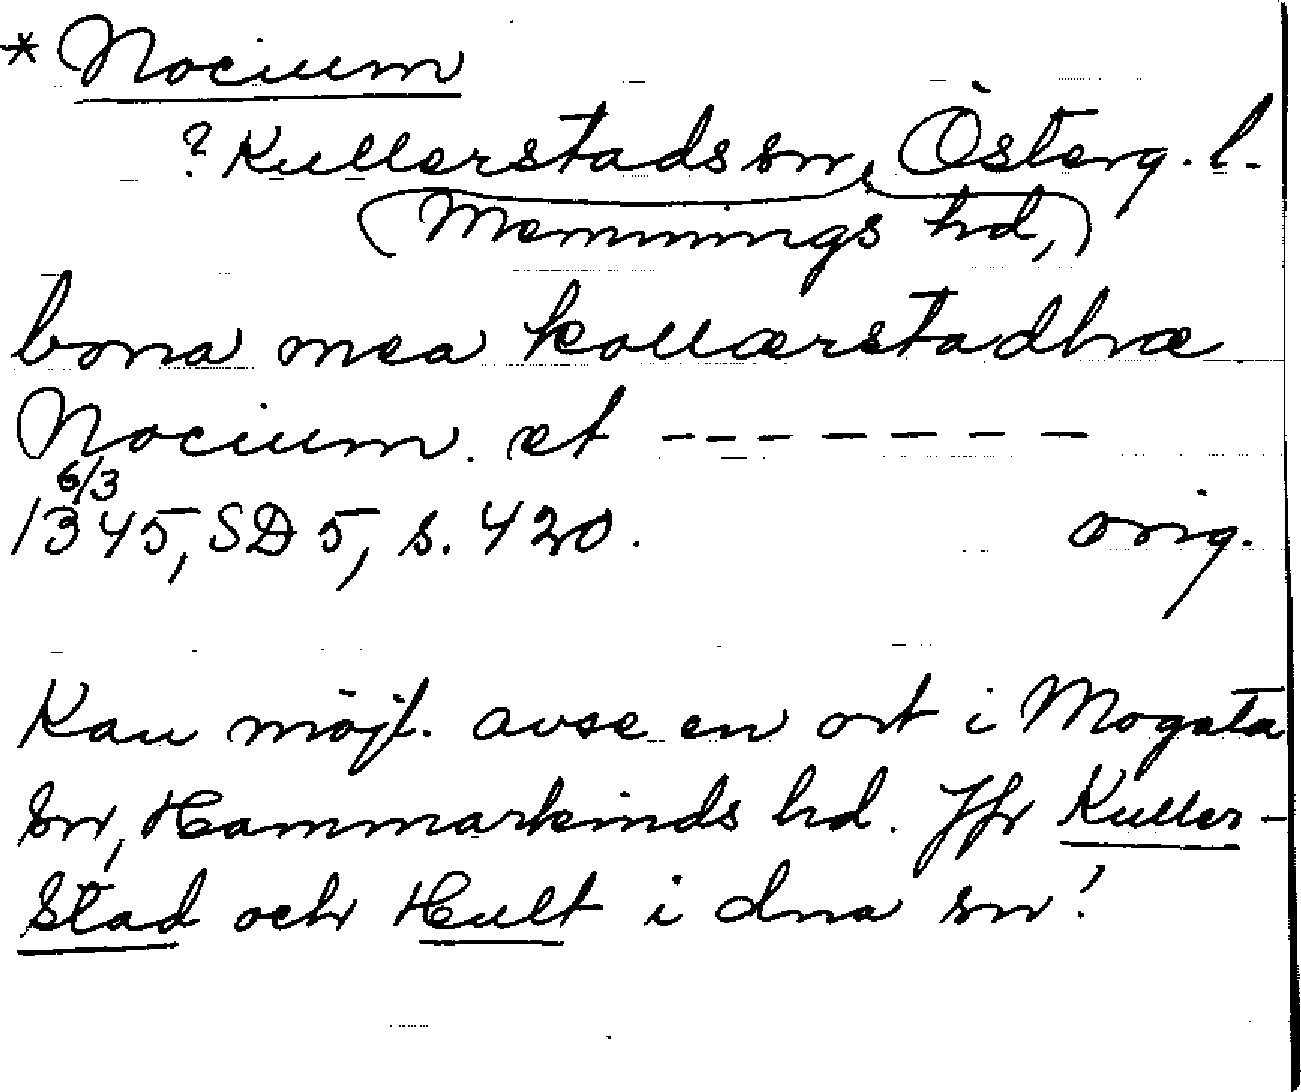 * Nocium
? Kullerstads sn, Österg. l.
(Memmings hd,)
bona mea kollærstadhræ
Nocium. et - - - - - - -
6/3
1345, SD 5, s. 420. orig.
Kan möjl. avse en ort i Mogata
sn, Hammarkinds hd. Jfr Kuller-
stad och Hult i dna sn!